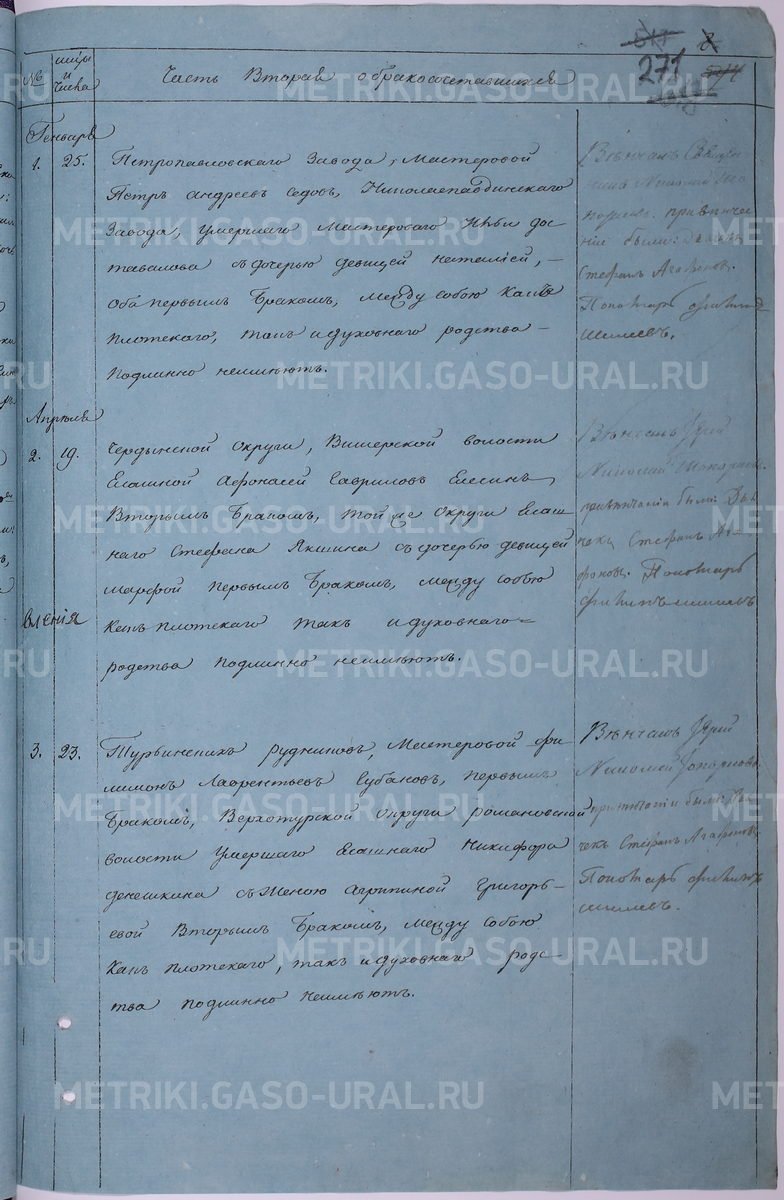 №
мцы
и
числа
Часть Вторая о бракосочетавшихся
271
Генваря
1. 25. Петропавловскаго Завода, Мастеровой
Петръ андреевъ седовъ, Николаепавдинскаго
Завода, умершаго Мастероваго
съ дочерью девицей наталiей,
оба первымъ Бракомъ, между собою какъ
плотскаго, такъ и духовнаго родства
подлинно неимѣютъ.
Вѣнчалъ Священ
никъ Николай
привенча
нiе были: дьячекъ
Стефанъ Агафоновъ.
Пономарь филипъ
шишевъ.
Апреля
2. 19. Чердынской округи, Вишерской волости
Ясашной Афонасей Гавриловъ
Вторымъ Бракомъ, той же округи Ясаш
наго Стефана Якшина съ дочерью девицей
марфой первымъ Бракомъ, между собою
какъ плотскаго такъ и духовнаго
родства подлинно неимѣютъ.
Вѣнчалъ Iерей
Николай
привѣнчанiи были: Дья
чекъ Стефанъ Ага
фоновъ. Пономарь
филипъ шишевъ
вленiя
3. 23. Турьинскихъ рудниковъ, Мастеровой фи
лимонъ Лаврентьевъ Субаковъ, первымъ
Бракомъ, Верхотурской округи романовской
волости умершаго Ясашнаго Никифора
денешкина съ Женою агрипиной Григорь
евой Вторымъ Бракомъ, между собою
какъ плотскаго, такъ и духовнаго родс
тва подлинно неимѣютъ.
Вѣнчалъ Iерей
Николай
привѣнчанiи были: Дья
чекъ Стефанъ Агафоновъ
Пономарь филипъ
шишевъ.
METRIKI.GASO-URAL.RU